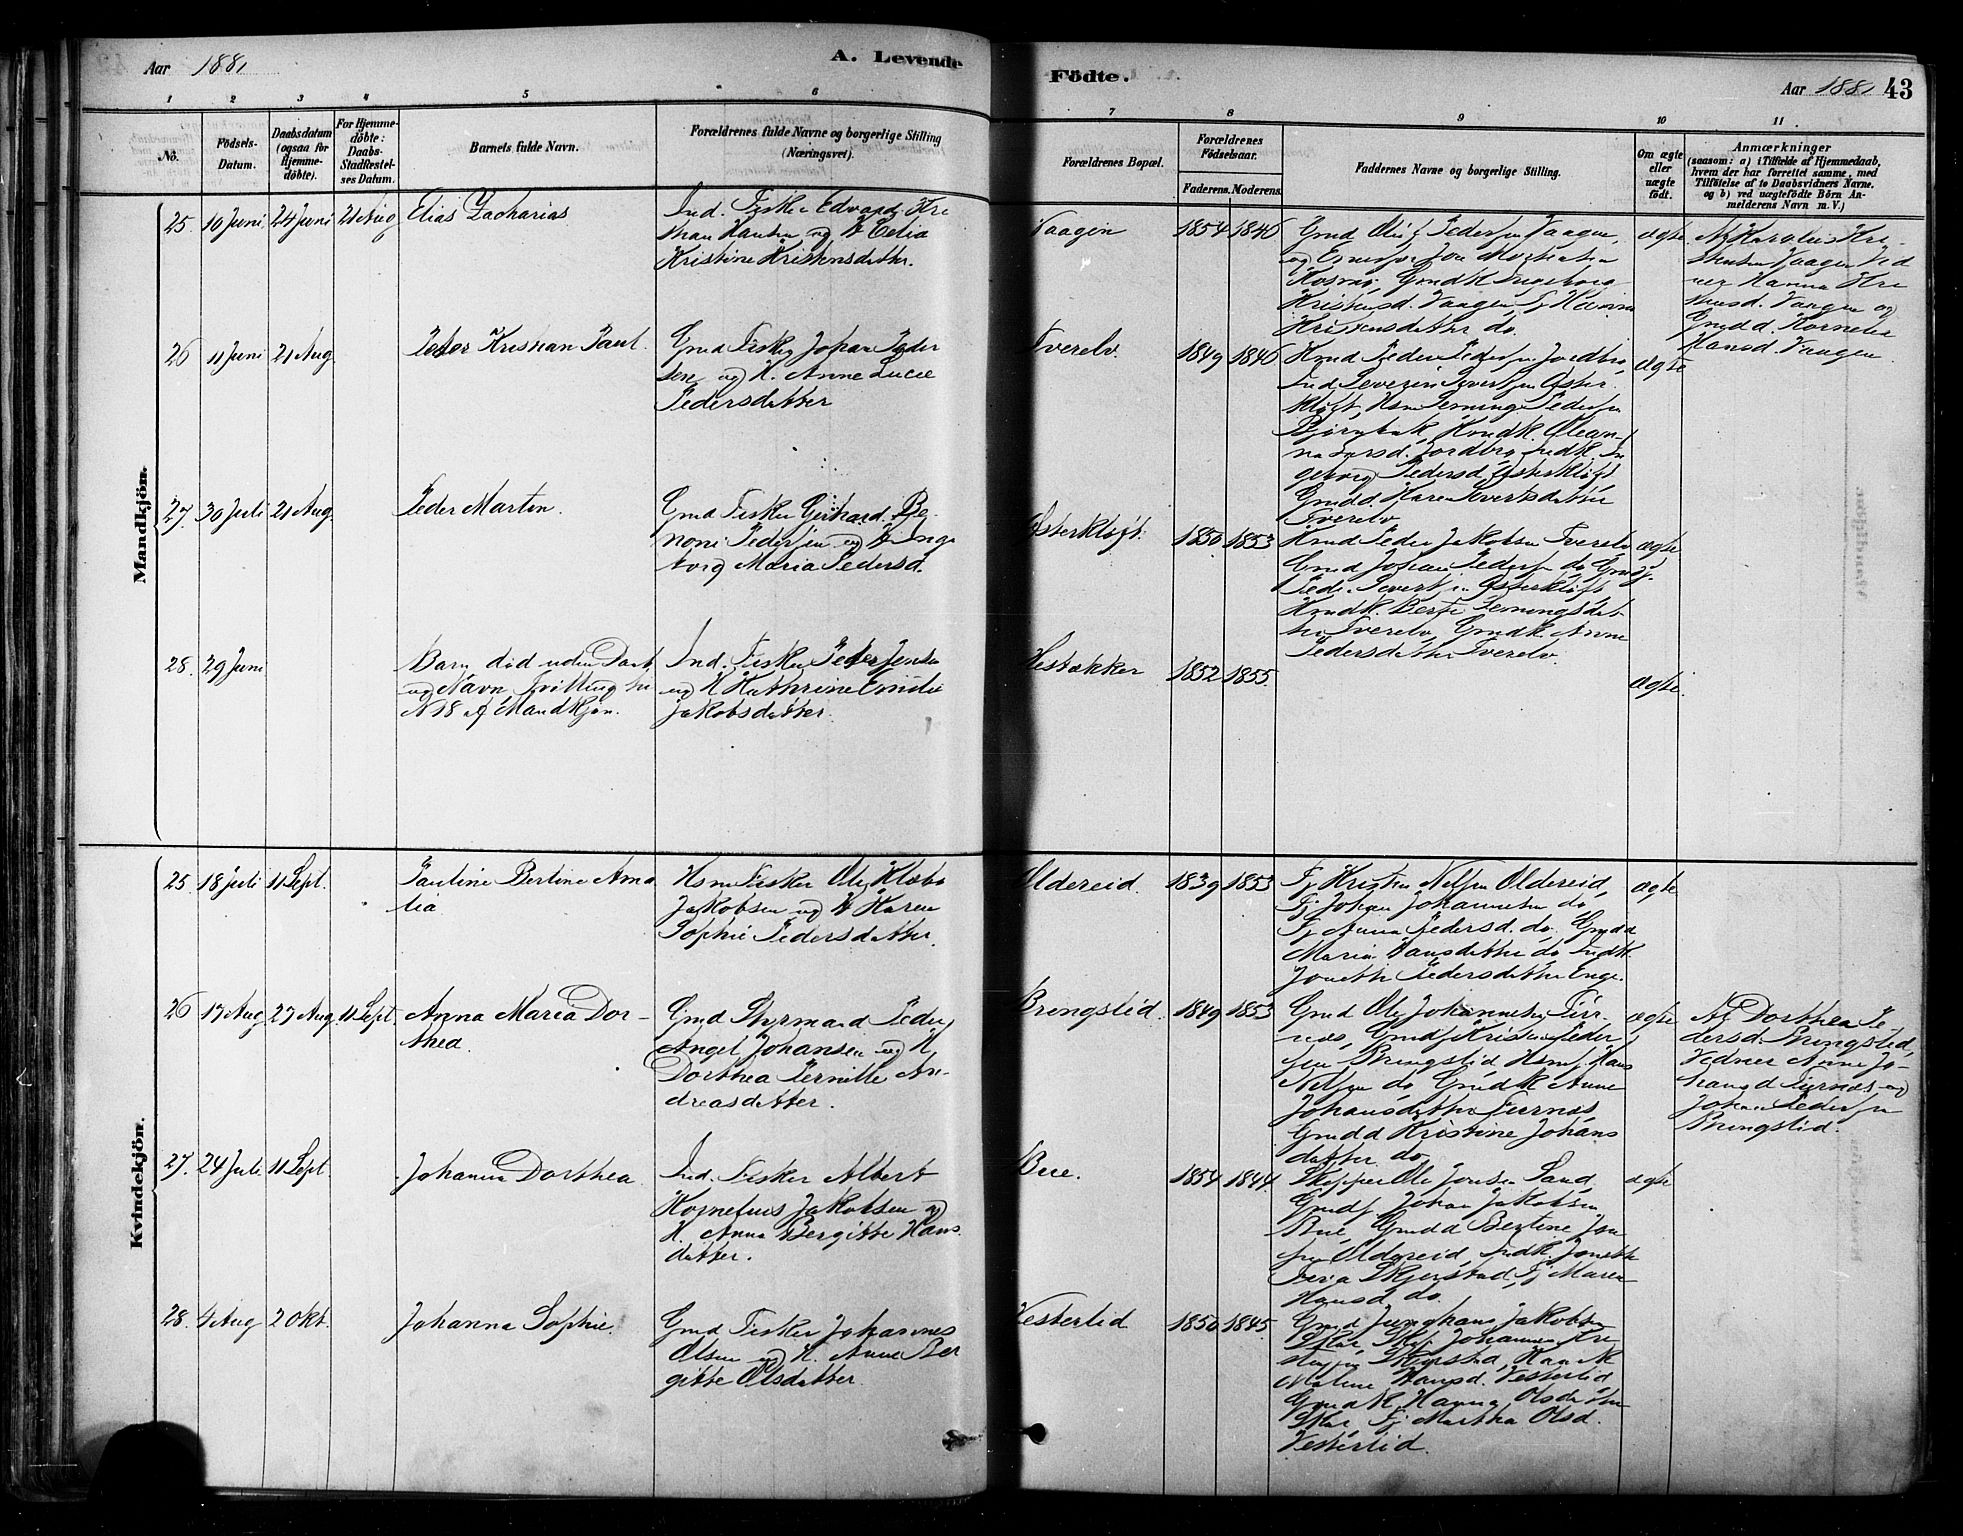 Aar 1881
A. Levende
Födte.
Aar 1881
43
1
2
3
4
5
6
7
8
9
10
11
Nö.
Födsels-
Datum.
Daabsdatum
(ogsaa for
Hjemme-
döbte).
For Hjemme-
döbte:
Daabs-
StadRestel-
ses Datum.
Barnets fulde Navn.
Forældrenes fulde Navne og borgerlige Stilling
(Næringsvei).
Forældrenes Bopæl.
Forældrenes
Födselsaar.
Faderens.
Moderens.
Faddernes Navne og borgerlige Stilling.
Om ægte
eller
uægte
födt.
Anmærkninger
(saasom: a) i Tilfælde af Hjemmedaab,
hvem der har forrettet samme, med
Tilföielse af to Daabsvidners Navne,
og b) ved uægtefödte Börn An-
melderens Navn m. V.)
Mandkjön.
25.
10 Juni
24 Juni
21 Aug
Elias Zacharias
Ind. Fisker Edvard Kri
stian Hansen og H. Celia
Kristine Kristensdatter.
Vaagen
1854
1846
Gmd Oluf Pedersen Vaagen,
Gmdk Ingeborg
Kristensd. Vaagen, Hanna
Kristensdatter do.
ægte
Af Karolus Kri-
stensen Vaagen Vid
ner Hanna Kri
stensd. Vaagen og
Gmdd. Kornelia
Hansd. Vaagen
26
11 Juni
21 Aug
Peter Kristian Paul.
Gmd Fisker Johan Peder
sen og H. Anne Lucie
Pedersdatter
Tverelv.
1849
1846
Kmd Peder Pedersen Jordbro,
Ind Severin Sivertsen Øster
kløft, Hsm Jenning Pedersen
Bjørnbak, Kmdk. Olean-
na Larsd. Jordbro, Indk. In
geborg Pedersd. Østerkløft
Gmdd. Karen Sivertsdatter
Tverelv
ægte
27.
30 Juli
21 Aug.
Peder Martin.
Gmd Fisker Gerhard Be-
noni Pedersen og H. Inge
borg Maria Pedersd.
Østerkløft.
1850
1853
Kmd Peder Jakobsen Tverelv
Gmd Johan Pedersen do Gmdf.
Peder Sivertsen Østerkløft
Kmdk. Berte Jenningsdat
ter Tverelv, Gmdk Anne
Pedersdatter Tverelv.
ægte
28.
29 Juni
Barn død uden Daab
og Navn, Tvilling til
N 18 af Mandkjøn.
Ind. Fisker Peder Jensen
og H Kathrine Emilie
Jakobsdatter.
Hestakker
1852
1855.
ægte.
Kvindekjön.
25.
18 Juli
11 Sept.
Pauline Bertine Ama
lia
Hsm Fisker Ole Klæbo
Jakobsen og H Karen
Sophie Pedersdatter.
Oldereid.
1839
1853
Fj Kristen Nilsen Oldereid,
Fj Johan Johannesen do
Fj Anna Pedersd. do. Gmdd
Maria Hansdatter do Indk.
Jonette Pedersdatter Enge.
ægte
26
17 Aug
27 Aug.
11 Sept.
Anna Maria Dor-
thea
Gmd Styrmand Peder
Angel Johansen og H
Dorthea Pernille An-
dreasdatter.
Bringslid.
1849
1853
Gmd Ole Johannesen Tur-
næs, Gmdf Kristen Peder
sen Bringslid Hsmf. Hans
Nilsen do Gmdk Anne
Johansdatter Turnæs,
Gmdd Kristine Johans
datter do
ægte
Af Dorthea Pe-
dersd. Bringslid,
Vidner Anne Jo-
hansd Turnæs og
Johan Pedersen
Bringslid.
27.
24 Juli
11 Sept
Johanna Dorthea
Ind. Fisker Albert
Kornelius Jakobsen og
H. Anna Bergitte Hans
datter.
Bue.
1854
1844.
Skipper Ole Jensen Sand,
Gmdf. Johan Jakobsen
Bue, Gmdd Bertine Jen
sen Oldereid, Indk. Jonette
Skjerstad, Fj Maren
Hansd do.
ægte
28.
4 Aug
2 Okt.
Johanna Sophie.
Gmd Fisker Johannes
Olsen og H. Anne Ber
gitte Olsdatter.
Vesterlid
1850
1845.
Gmd Junghans Jakobsen
Skar, Johannes Kri
stensen Skjerstad,
Malene Hansd. Vesterlid
Gmdk Hanna Olsdatter
Skar Fj Martha Olsd.
Vesterlid.